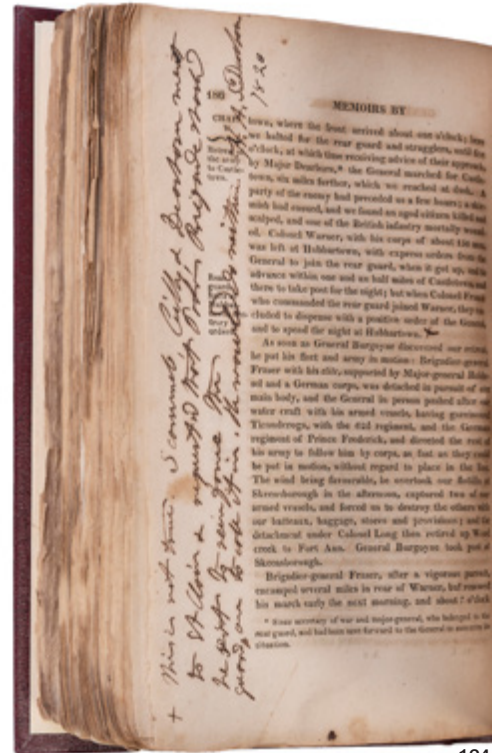 186
MEMOIRS BY
CHAP.
town, where the front arrived about one o'clock; here
we halted for the rear guard and stragglers, until five
o'clock, at which time receiving advice of their approach,
by Major Dearborn,* the General marched for Castle-
town, six miles further, which we reached at dusk. A
party of the enemy had preceded us a few hours; a skir-
mish had ensued, and we found an aged citizen killed and
scalped, and one of the British infantry mortally wound-
ed. Colonel Warner, with his corps of about 150 men,
was left at Hubbartown, with express orders from the
General to join the rear guard, when it got up, and to
advance within one and an half miles of Castletown, and
there to take post for the night; but when Colonel Francis
who commanded the rear guard joined Warner, they con-
cluded to dispense with a positive order of the General,
and to spend the night at Hubbartown.
As soon as General Burgoyne discovered our retreat,
he put his fleet and army in motion: Brigadier-general
Fraser with his elite, supported by Major-general Reide-
sel and a German corps, was detached in pursuit of our
main body, and the General in person pushed after our
water craft with his armed vessels, having garrisoned
Ticonderoga, with the 62d regiment, and the German
regiment of Prince Frederick, and directed the rest of
his army to follow him by corps, as fast as they could
be put in motion, without regard to place in the line.
The wind being favourable, he overtook our flotilla at
Skeensborough in the afternoon, captured two of our
armed vessels, and forced us to destroy the others with
our batteaux, baggage, stores and provisions; and the
detachment under Colonel Long then retired up Wood
creek to Fort Ann. General Burgoyne took post at
Skeensborough.
Brigadier-general Fraser, after a vigorous pursuit,
encamped several miles in rear of Warner, but resumed
his march early the next morning, and about 7 o'clock
* Since secretary of war and major-general, who belonged to the
rear guard, and had been sent forward to the General to announce its
situation.
+ This is not true Scammel Cilly & Dearborn went
to St Clair & requested that Poor's Brigade should
he
guard
1820